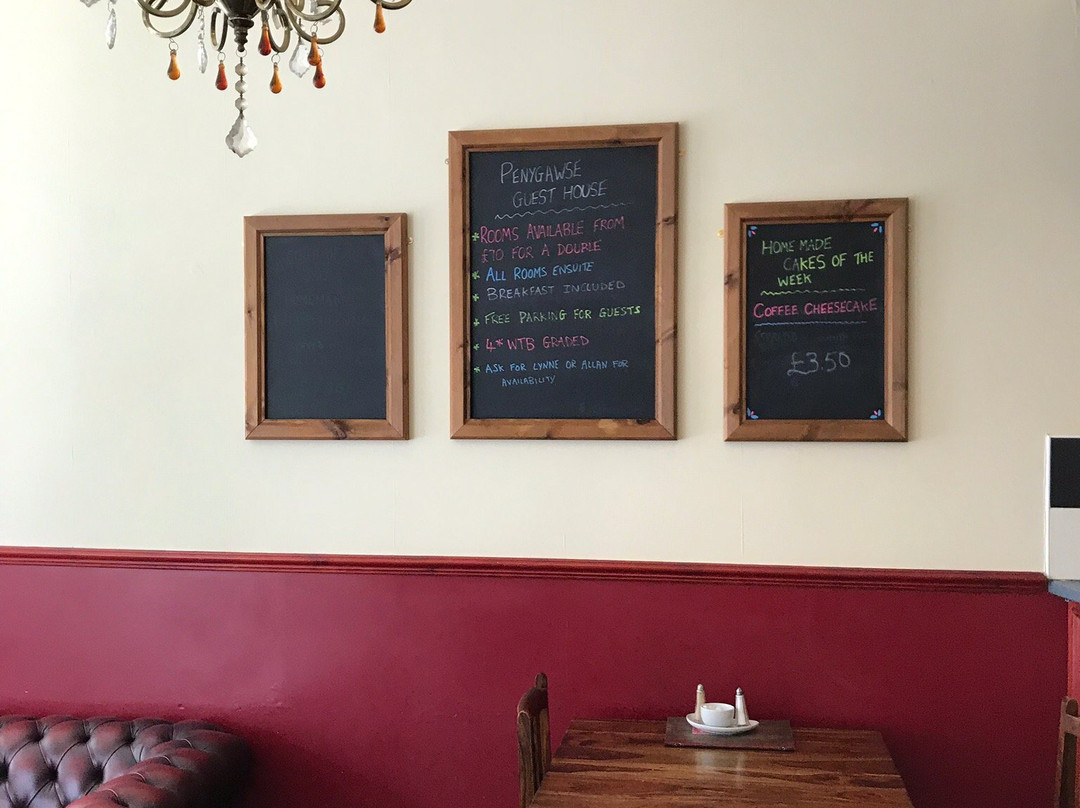 PENYGAWSE
GUEST HOUSE
* ROOMS AVAILABLE FROM
£70 FOR A DOUBLE
* ALL ROOMS ENSUITE
* BREAKFAST INCLUDED
* FREE PARKING FOR GUESTS
* 4* WTB GRADED
* ASK FOR LYNNE OR ALLAN FOR
AVAILABILITY
HOME MADE
CAKES OF THE
WEEK
COFFEE CHEESECAKE
£3.50